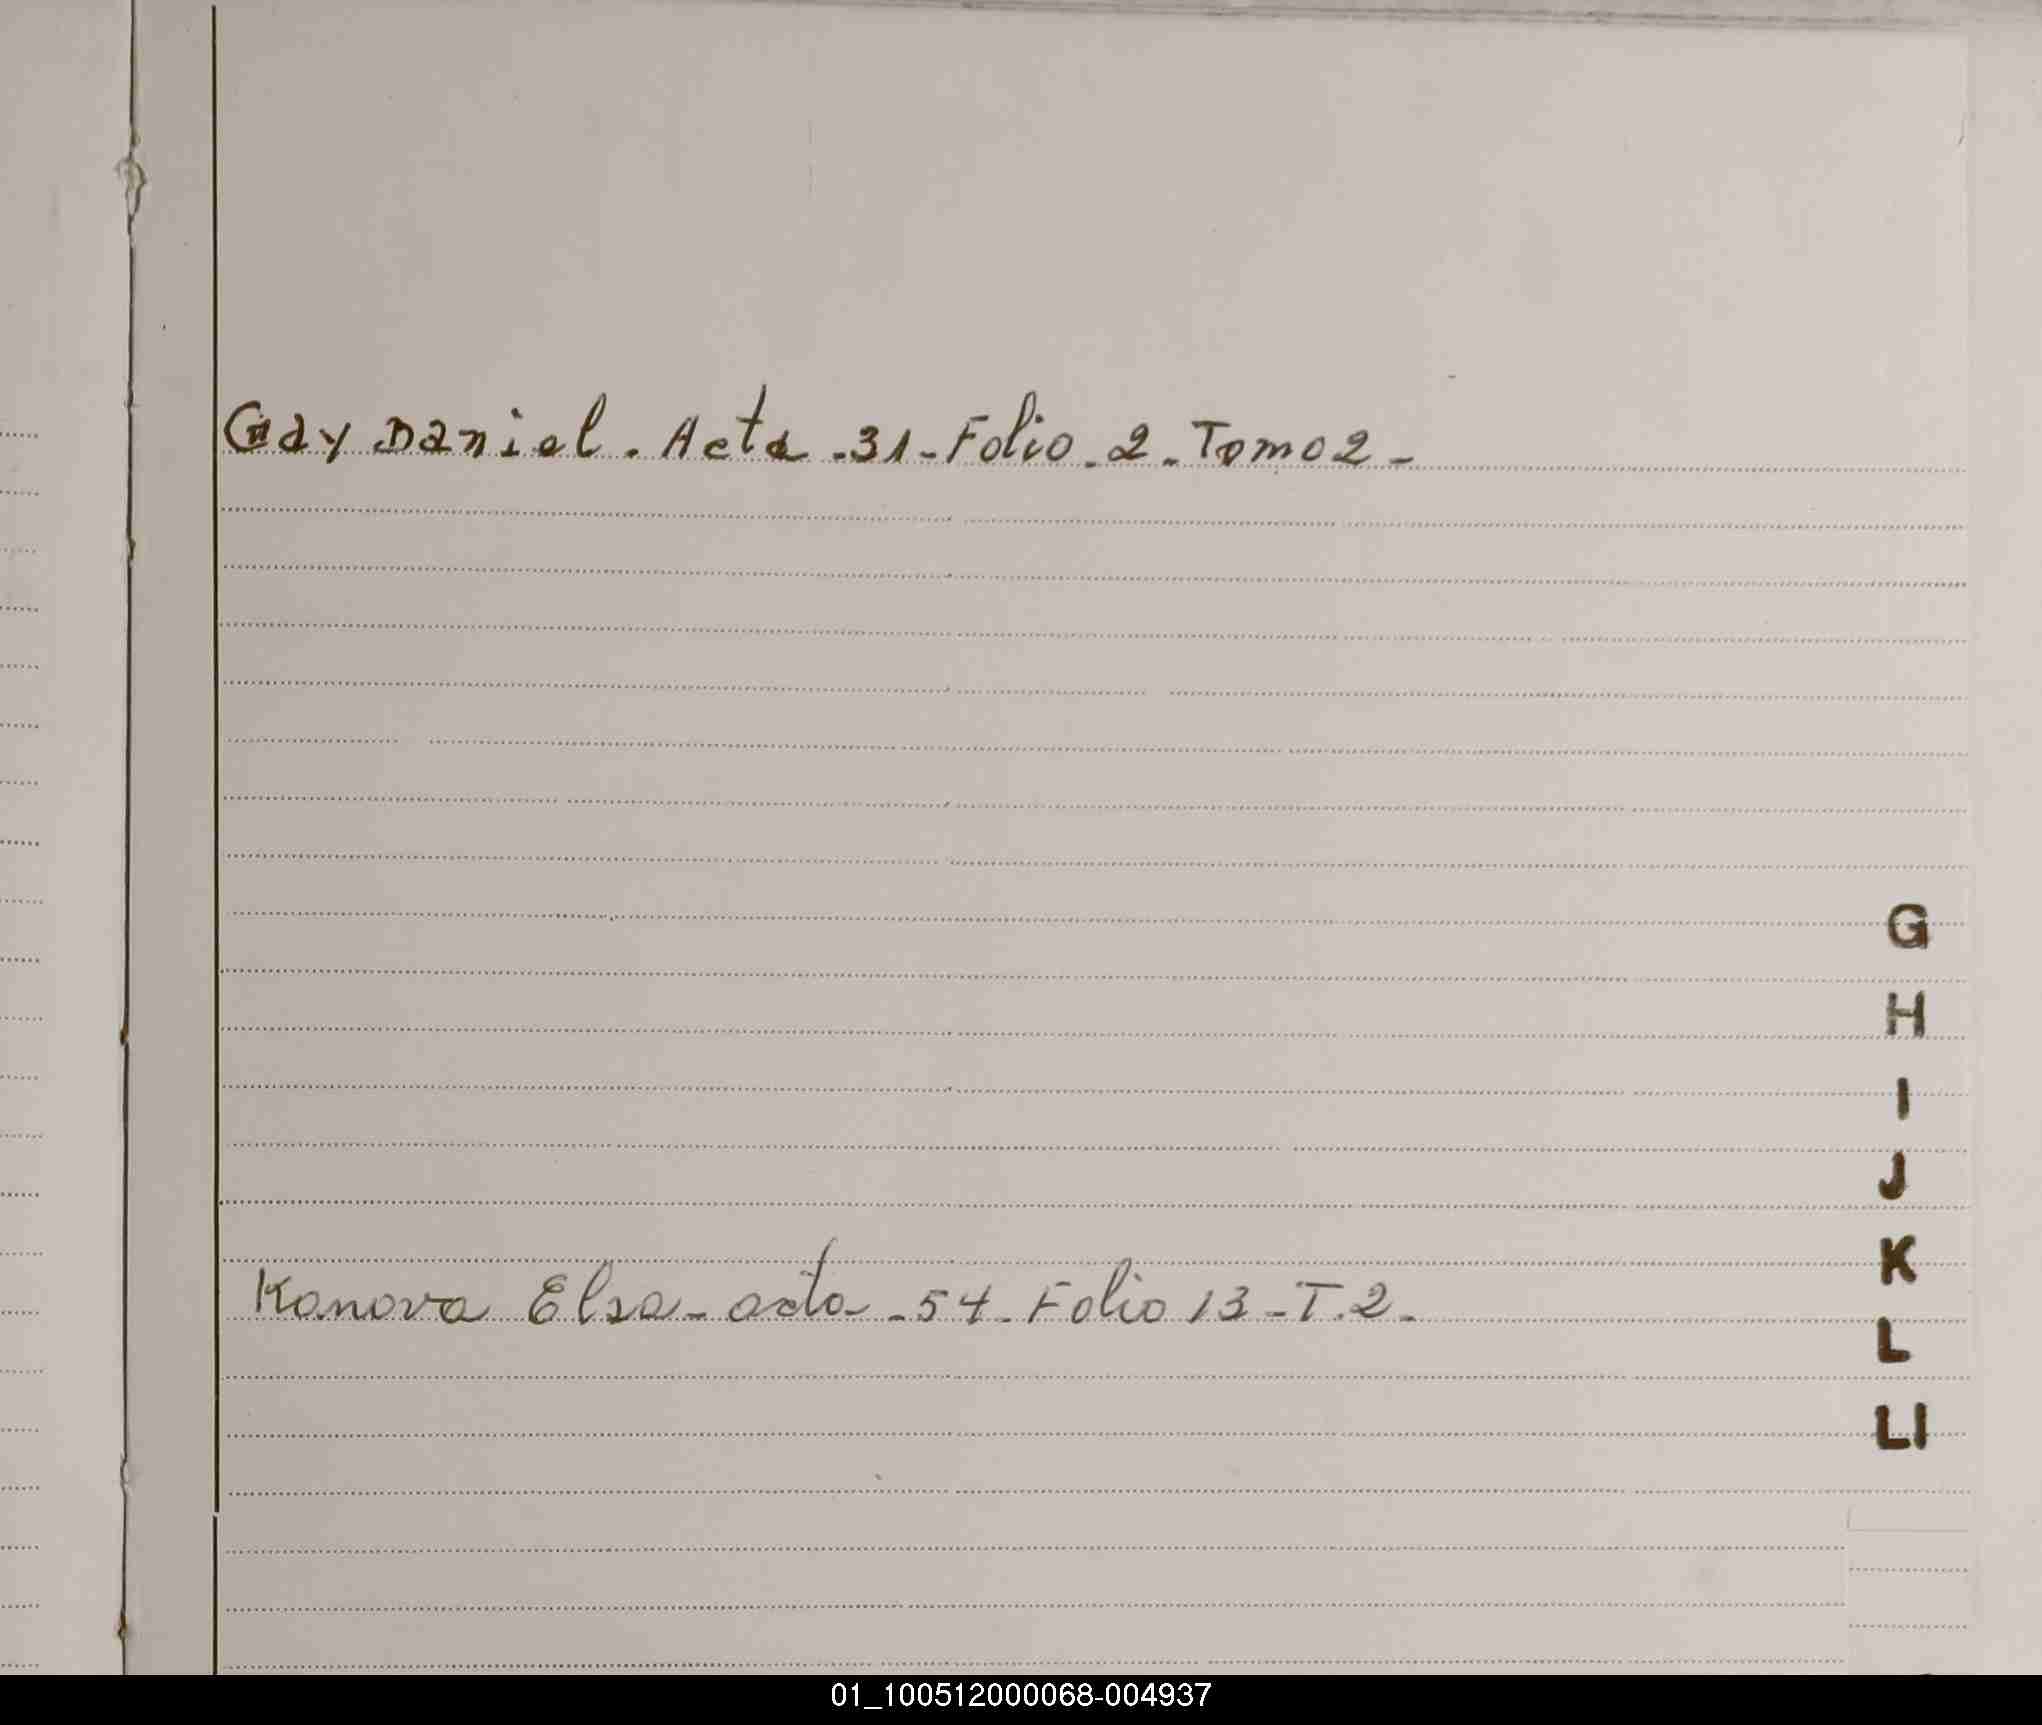 Gay Daniel. Acta - 31 - Folio - 2 - Tomo 2 -
G
H
I
J
K
Kanova Elsa - acta - 54 - Folio 13 - T. 2 -
L
Ll
01_100512000068-004937